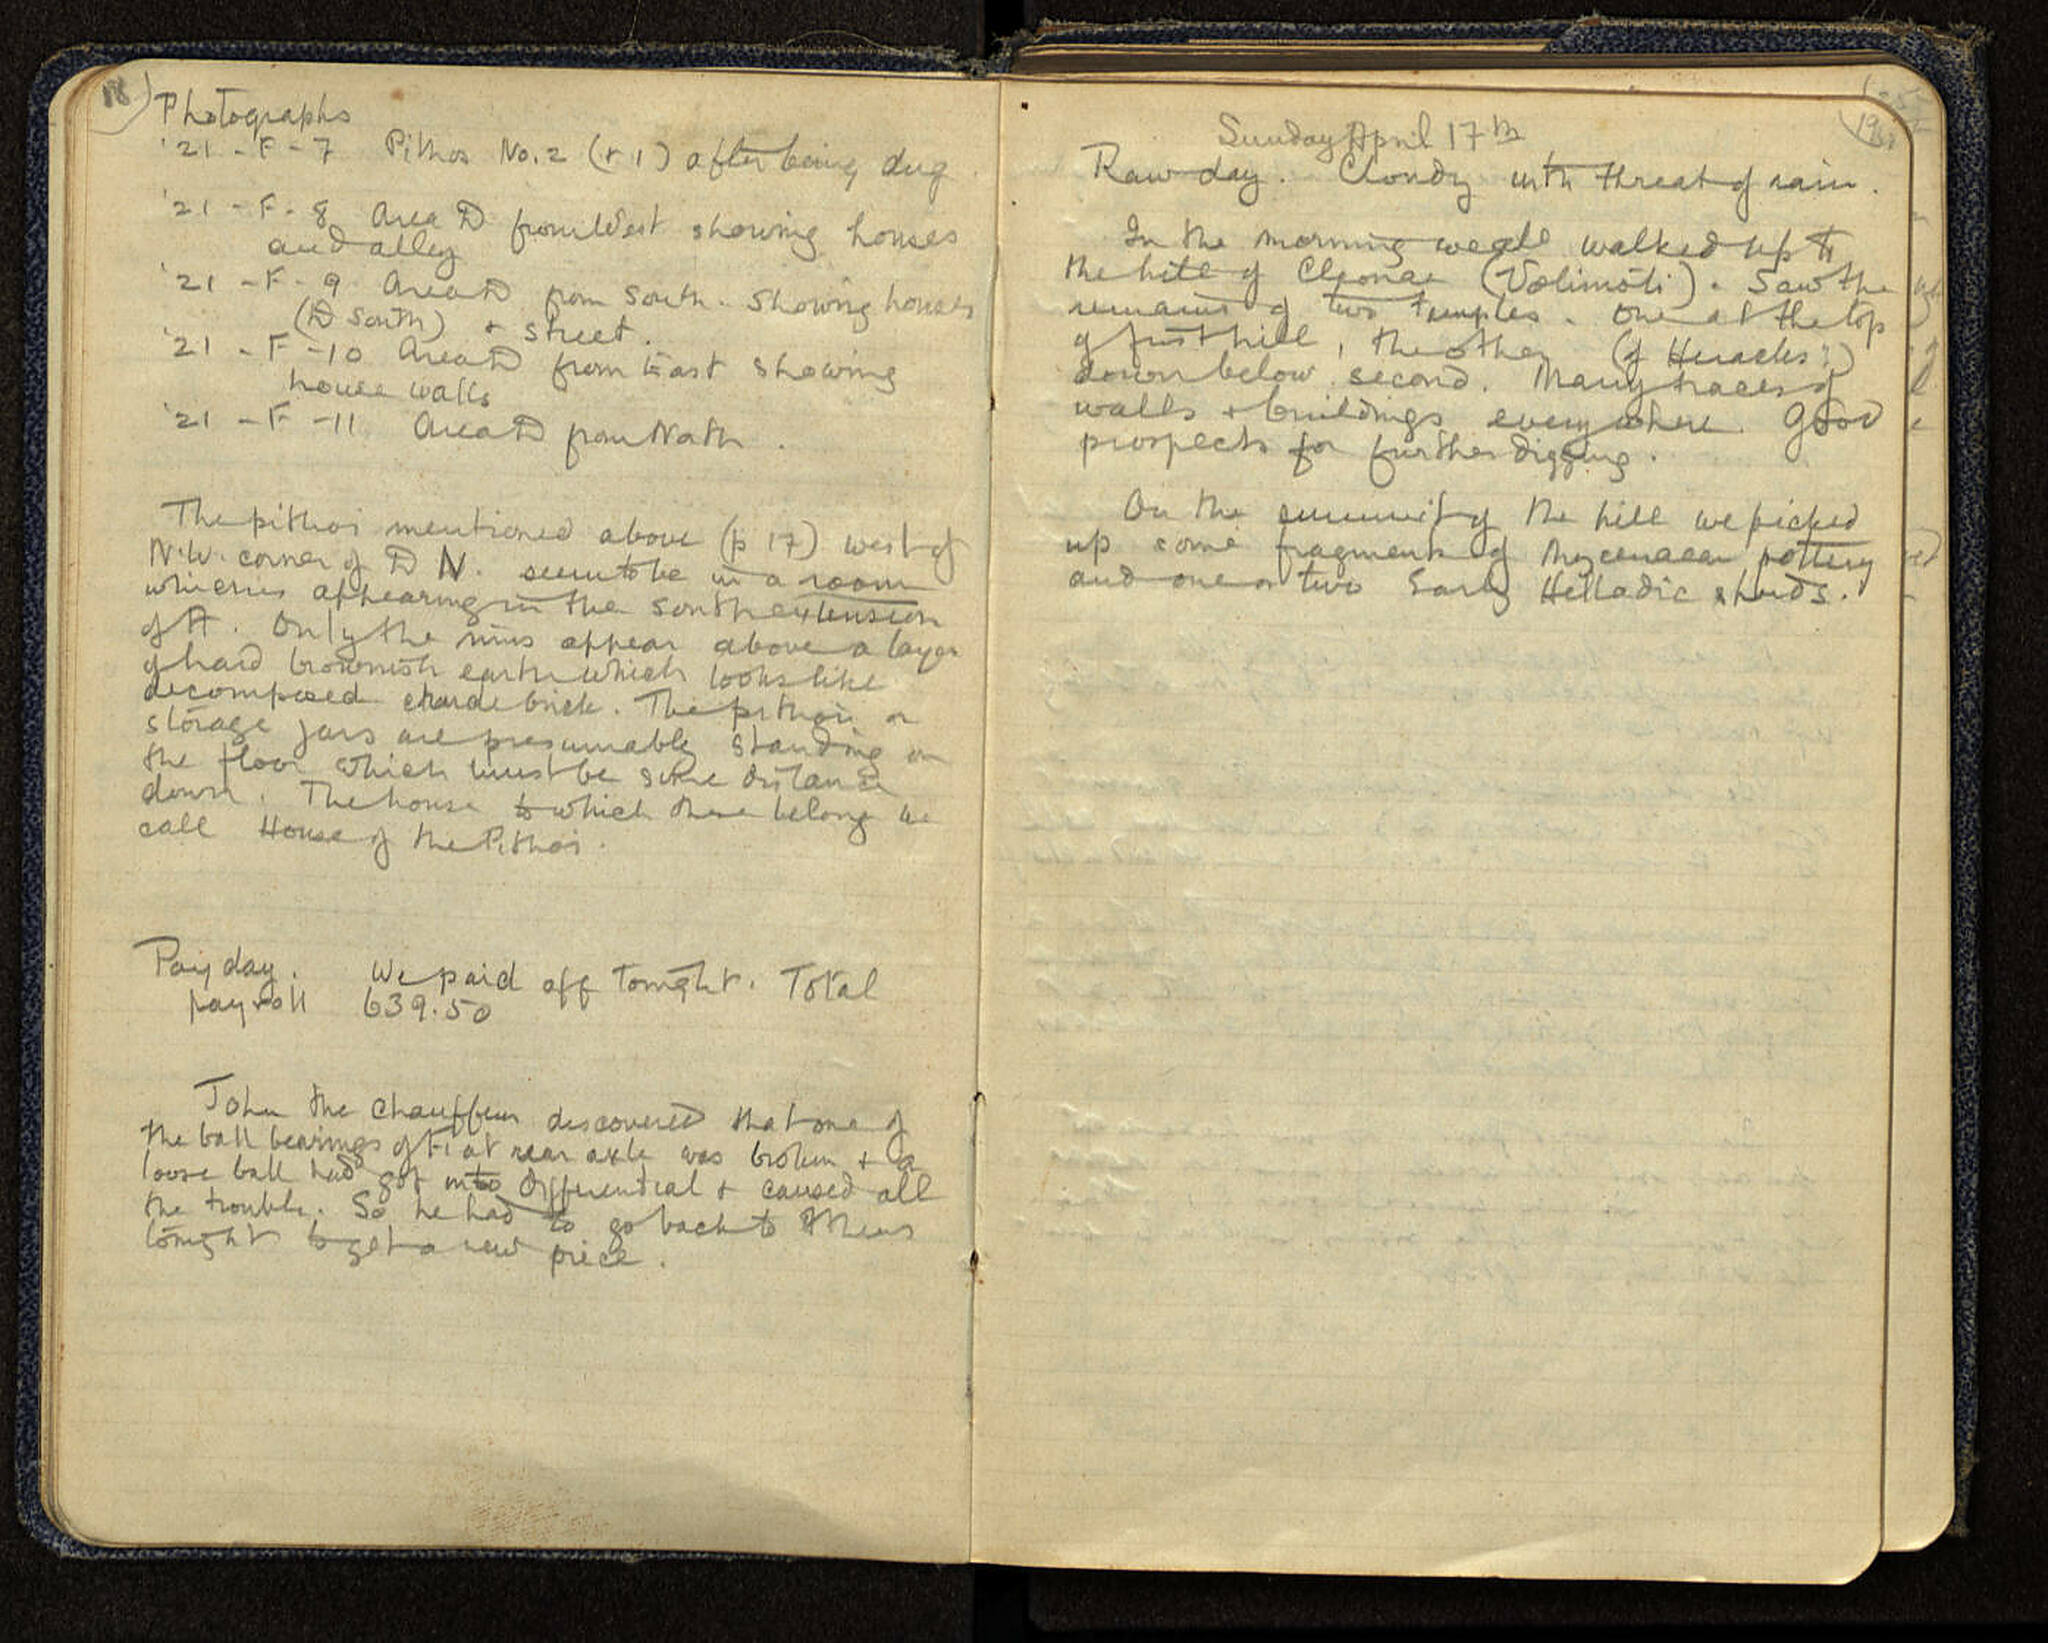 18
Photographs
'21 - F - 7 Pithos No. 2 (+ 1) after being dug.
'21 - F - 8 Area D from West showing houses
and alley
'21 - F - 9 Area D from South. Showing houses
(D South) + street.
'21 - F - 10 Area D from East showing
house walls
'21 - F - 11 Area D from North.
The pithoi mentioned above (p 17) west of
N.W. corner of D N. seem to be in a room
which is appearing in the south extension
of A. Only the rims appear above a layer
of hard brownish earth which looks like
decomposed crude brick. The pithoi or
storage jars are presumably standing on
the floor which must be some distance
down. The house to which these belong we
call House of the Pithoi.
Pay day. We paid off tonight. Total
payroll 639.50
John the chauffeur discovered that one of
the ball bearings of Fiat rear axle was broken + a
loose ball had got into differential + caused all
the trouble. So he had to go back to Athens
tonight to get a new piece.
19
Sunday April 17th
Raw day. Cloudy with threat of rain.
In the morning we all walked up to
the hill of Cleonae (Volimoti). Saw the
remains of two temples. One at the top
of first hill, the other (of Heracles?)
down below second. Many traces of
walls + buildings everywhere. Good
prospects for further digging.
On the summit of the hill we picked
up some fragments of Mycenaean pottery
and one or two Early Helladic sherds.